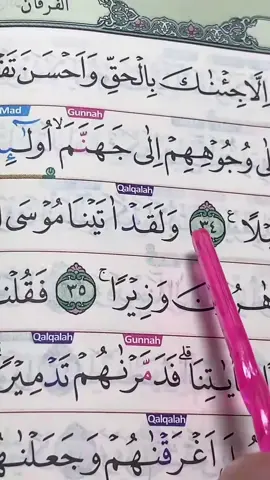 الفرقان
اِلَّا جِئْنٰكَ بِالْحَقِّ وَاَحْسَنَ
Mad
Gunnah
وُجُوْهِهِمْ اِلٰى جَهَنَّمَ ۙ اُولٰۤىِٕ
Qalqalah
٣٤ وَلَقَدْ اٰتَيْنَا مُوْسَى
وَزِيْرًا ۚ ٣٥ فَقُلْنَا
Qalqalah
Gunnah
بِاٰيٰتِنَا ۗ فَدَمَّرْنٰهُمْ تَدْمِيْرًا
Qalqalah
اَغْرَقْنٰهُمْ وَجَعَلْنٰهُمْ